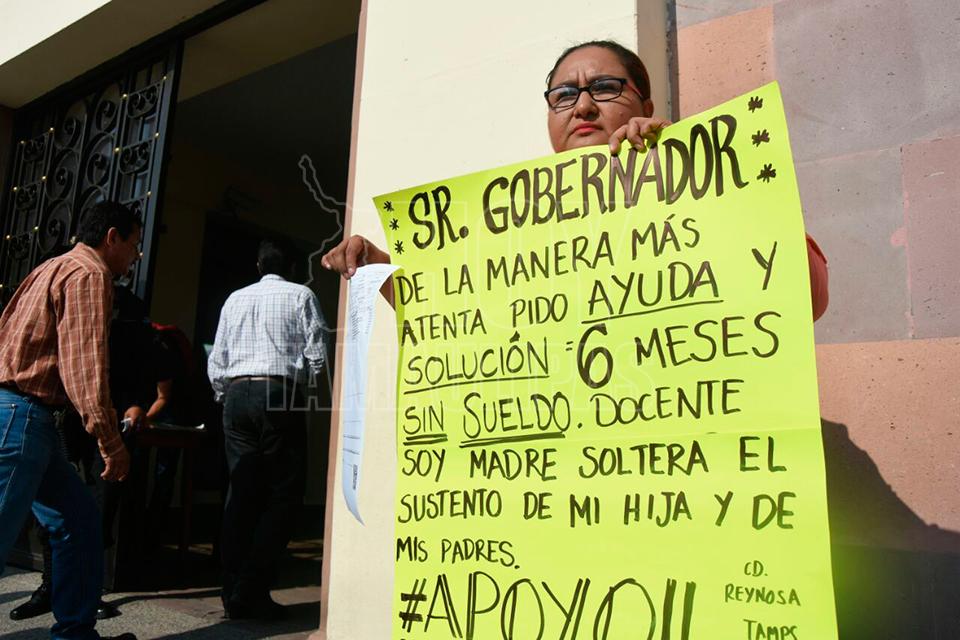 *** SR. GOBERNADOR ***
DE LA MANERA MÁS
ATENTA PIDO AYUDA Y
SOLUCIÓN = 6 MESES
SIN SUELDO. DOCENTE
SOY MADRE SOLTERA EL
SUSTENTO DE MI HIJA Y DE
MIS PADRES.
#APOYO!!
CD.
REYNOSA
TAMPS
HOY
TAMAULIPAS